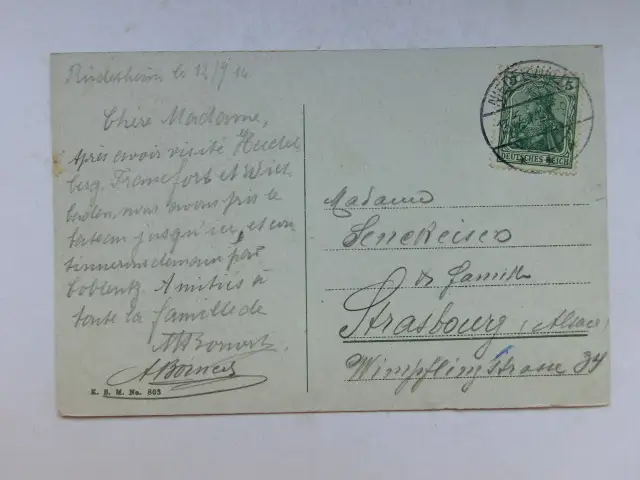 Rüdesheim le 12/9 14
Chère Madame,
Après avoir visité Heidel
berg, Francfort et Wies
baden, nous avons pris le
bateau jusqu'ici, et con
tinuerons demain par
Coblentz. Amitiés à
toute la famille de
K. B. M. No. 803
5
DEUTSCHES REICH
Madame
& famille
Strasbourg (Alsace)
Wimpflingstrasse 34